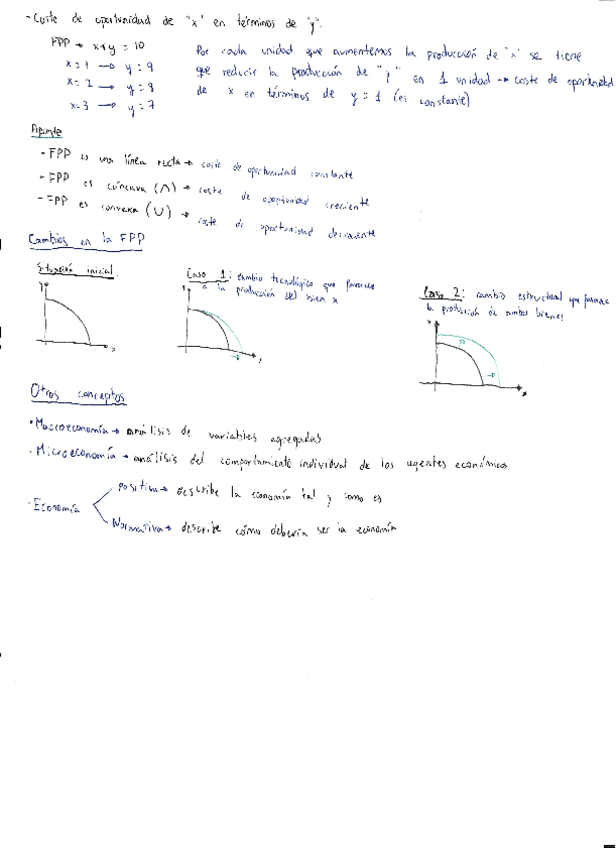 - Coste de oportunidad de "x" en términos de "y".
FPP → x+y = 10
x = 1 → y = 9
x = 2 → y = 8
x = 3 → y = 7
Por cada unidad que aumentemos la producción de "x" se tiene
que reducir la producción de "y" en 1 unidad → coste de oportunidad
de x en términos de y = 1 (es constante)
Aparte
- FPP es una línea recta → coste de oportunidad constante
- FPP es cóncava (∩) → coste de oportunidad creciente
- FPP es convexa (∪) → coste de oportunidad decreciente
Cambios en la FPP
Situación inicial:
Caso 1: cambio tecnológico que favorece
a la producción del bien x
Caso 2: cambio estructural que favorece
la producción de ambos bienes
y
x
Otros conceptos
· Macroeconomía → análisis de variables agregadas
· Microeconomía → análisis del comportamiento individual de los agentes económicos
· Economía
positiva → describe la economía tal y como es
Normativa → describe cómo debería ser la economía